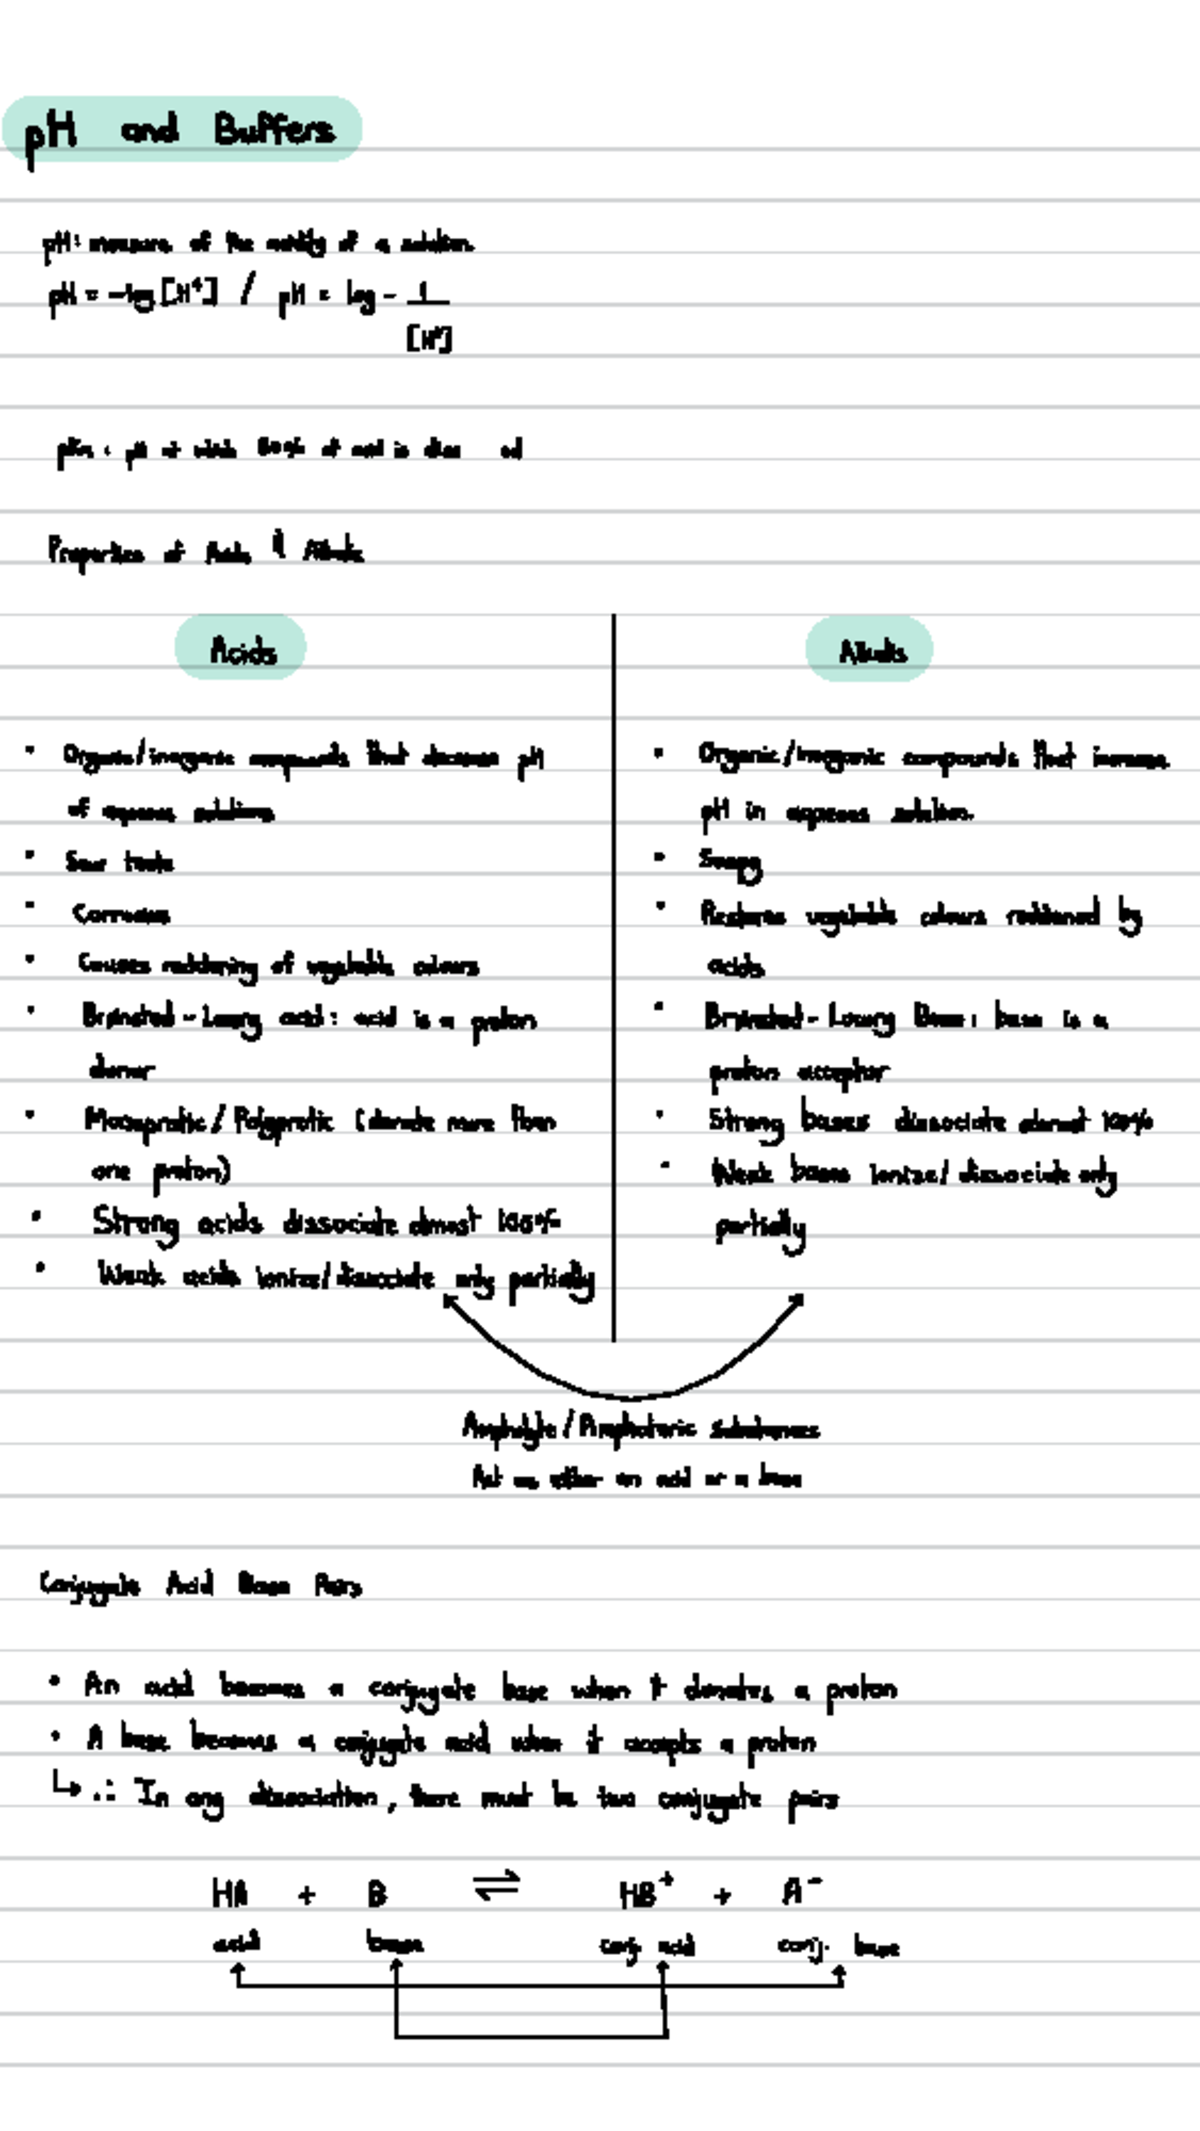 pH and Buffers
pH: measure of the acidity of a solution.
pH = -log [H⁺] / pH = log - 1
[H⁺]
pKa : pH at which 50% of acid is diss ed
Properties of Acids & Alkalis
Acids
Alkalis
• Organic/inorganic compounds that decrease pH
of aqueous solutions
• Sour taste
• Corrosive
• Causes reddening of vegetable colours
• Brønsted-Lowry acid: acid is a proton
donor
• Monoprotic / Polyprotic (donate more than
one proton)
• Strong acids dissociate almost 100%
• Weak acids ionize/dissociate only partially
• Organic/inorganic compounds that increase
pH in aqueous solution.
• Soapy
• Restores vegetable colours reddened by
acids
• Brønsted-Lowry Base: base is a
proton acceptor
• Strong bases dissociate almost 100%
• Weak bases ionize/dissociate only
partially
Ampholyte / Amphoteric substances
Act as either an acid or a base
Conjugate Acid Base Pairs
• An acid becomes a conjugate base when it donates a proton
• A base becomes a conjugate acid when it accepts a proton
↳ ∴ In any dissociation, there must be two conjugate pairs
HA + B ⇌ HB⁺ + A⁻
acid base conj. acid conj. base